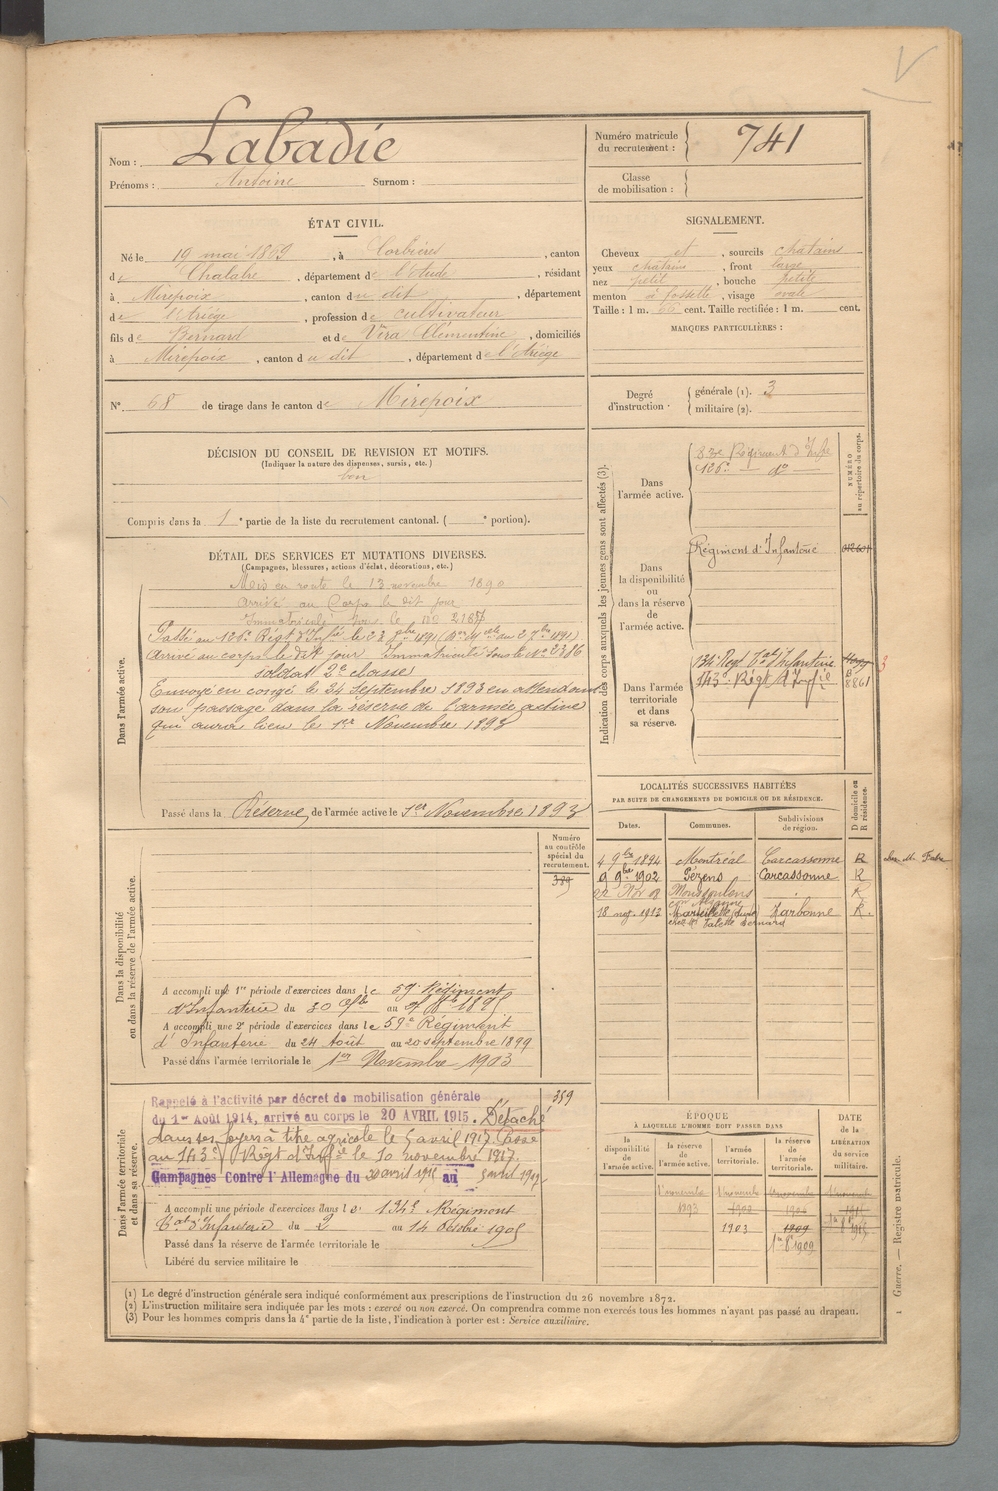 Nom : Labadie
Prénoms : Antoine Surnom :
Numéro matricule du recrutement : 741
Classe de mobilisation :
ÉTAT CIVIL.
Né le 19 mai 1869, à Corbières, canton
de Chalabre, département de l'Aude, résidant
à Mirepoix, canton du dit, département
de l'Ariège, profession de cultivateur
fils de Bernard et de Véra Clémentine, domiciliés
à Mirepoix, canton du dit, département de l'Ariège
N° 68 de tirage dans le canton de Mirepoix
SIGNALEMENT.
Cheveux et, sourcils châtains
yeux châtains, front large
nez petit, bouche petite
menton à fossette, visage ovale
Taille : 1 m. 66 cent. Taille rectifiée : 1 m. cent.
MARQUES PARTICULIÈRES :
Degré d'instruction générale (1). 3
militaire (2).
DÉCISION DU CONSEIL DE REVISION ET MOTIFS.
(Indiquer la nature des dispenses, sursis, etc.)
bon
Compris dans la 1e partie de la liste du recrutement cantonal. ( e portion).
DÉTAIL DES SERVICES ET MUTATIONS DIVERSES.
(Campagnes, blessures, actions d'éclat, décorations, etc.)
Dans l'armée active.
Mis en route le 13 novembre 1890
arrivé au Corps le dit jour
Immatriculé sous le No 2167
Passé au 126e Régt d'Infie le 28 1891
arrivé au corps le dit jour. Immatriculé sous le No 2386
soldat 2e classe
Envoyé en congé le 24 Septembre 1893 en attendant
son passage dans la réserve de l'armée active
qui aura lieu le 1er Novembre 1893
Passé dans la Réserve de l'armée active le 1er Novembre 1893
Indication des corps auxquels les jeunes gens sont affectés (3).
NUMÉRO au répertoire du corps.
Dans l'armée active.
83e Régiment d'Infie
126e do
Dans la disponibilité ou dans la réserve de l'armée active.
Régiment d'Infanterie
Dans l'armée territoriale et dans sa réserve.
134e Régt tal d'Infanterie
143e Régt d'Infie
8861
LOCALITÉS SUCCESSIVES HABITÉES
PAR SUITE DE CHANGEMENTS DE DOMICILE OU DE RÉSIDENCE.
Dates. Communes. Subdivisions de région. D domicile ou R résidence.
4 9bre 1894 Montréal Carcassonne R
9 9bre 1902 Pézens Carcassonne R
22 Nov 08 Moussoulens R
18 1912 Marseillette Narbonne R.
Valette Bernard
Dans la disponibilité ou dans la réserve de l'armée active.
Numéro au contrôle spécial du recrutement.
389
A accompli une 1re période d'exercices dans le 59e Régiment
d'Infanterie du 30 au 1895
A accompli une 2e période d'exercices dans le 59e Régiment
d'Infanterie du 24 Août au 20 septembre 1899
Passé dans l'armée territoriale le 1er Novembre 1903
Dans l'armée territoriale et dans sa réserve.
359
Rappelé à l'activité par décret de mobilisation générale
du 1er Août 1914, arrivé au corps le 20 AVRIL 1915. Détaché
dans ses foyers à titre agricole le 5 avril 1917. Passé
au 143e Régt d'Infie le 10 novembre 1917.
Campagnes Contre l'Allemagne du 20 avril 1915 au 5 avril 1917
A accompli une période d'exercices dans le 134e Régiment
tal d'Infanterie du 2 au 14 Octobre 1905
Passé dans la réserve de l'armée territoriale le
Libéré du service militaire le
ÉPOQUE
À LAQUELLE L'HOMME DOIT PASSER DANS
la disponibilité de l'armée active. la réserve de l'armée active. l'armée territoriale. la réserve de l'armée territoriale.
DATE de la LIBÉRATION du service militaire.
1 novembre 1 novembre 1 novembre 1 novembre
1893 1903 1909 1915
1903 1909
1909
(1) Le degré d'instruction générale sera indiqué conformément aux prescriptions de l'instruction du 26 novembre 1872.
(2) L'instruction militaire sera indiquée par les mots : exercé ou non exercé. On comprendra comme non exercés tous les hommes n'ayant pas passé au drapeau.
(3) Pour les hommes compris dans la 4e partie de la liste, l'indication à porter est : Service auxiliaire.
1 Guerre. — Registre matricule.